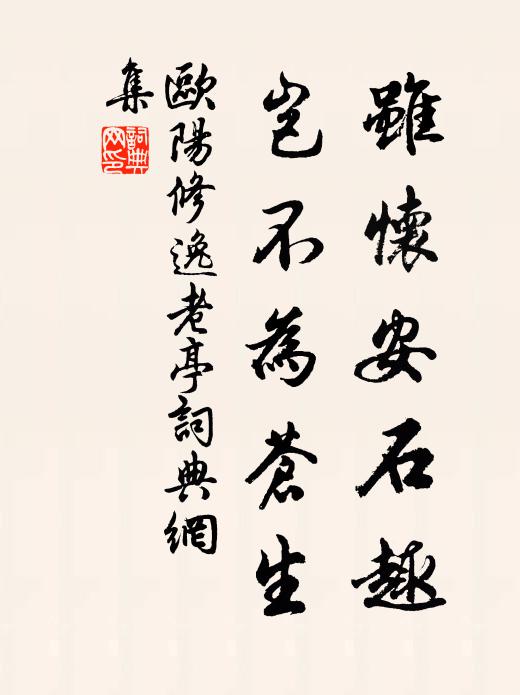 雖懷安石趣
豈不為蒼生
歐陽修逸老亭詞典網
集
詞典網印